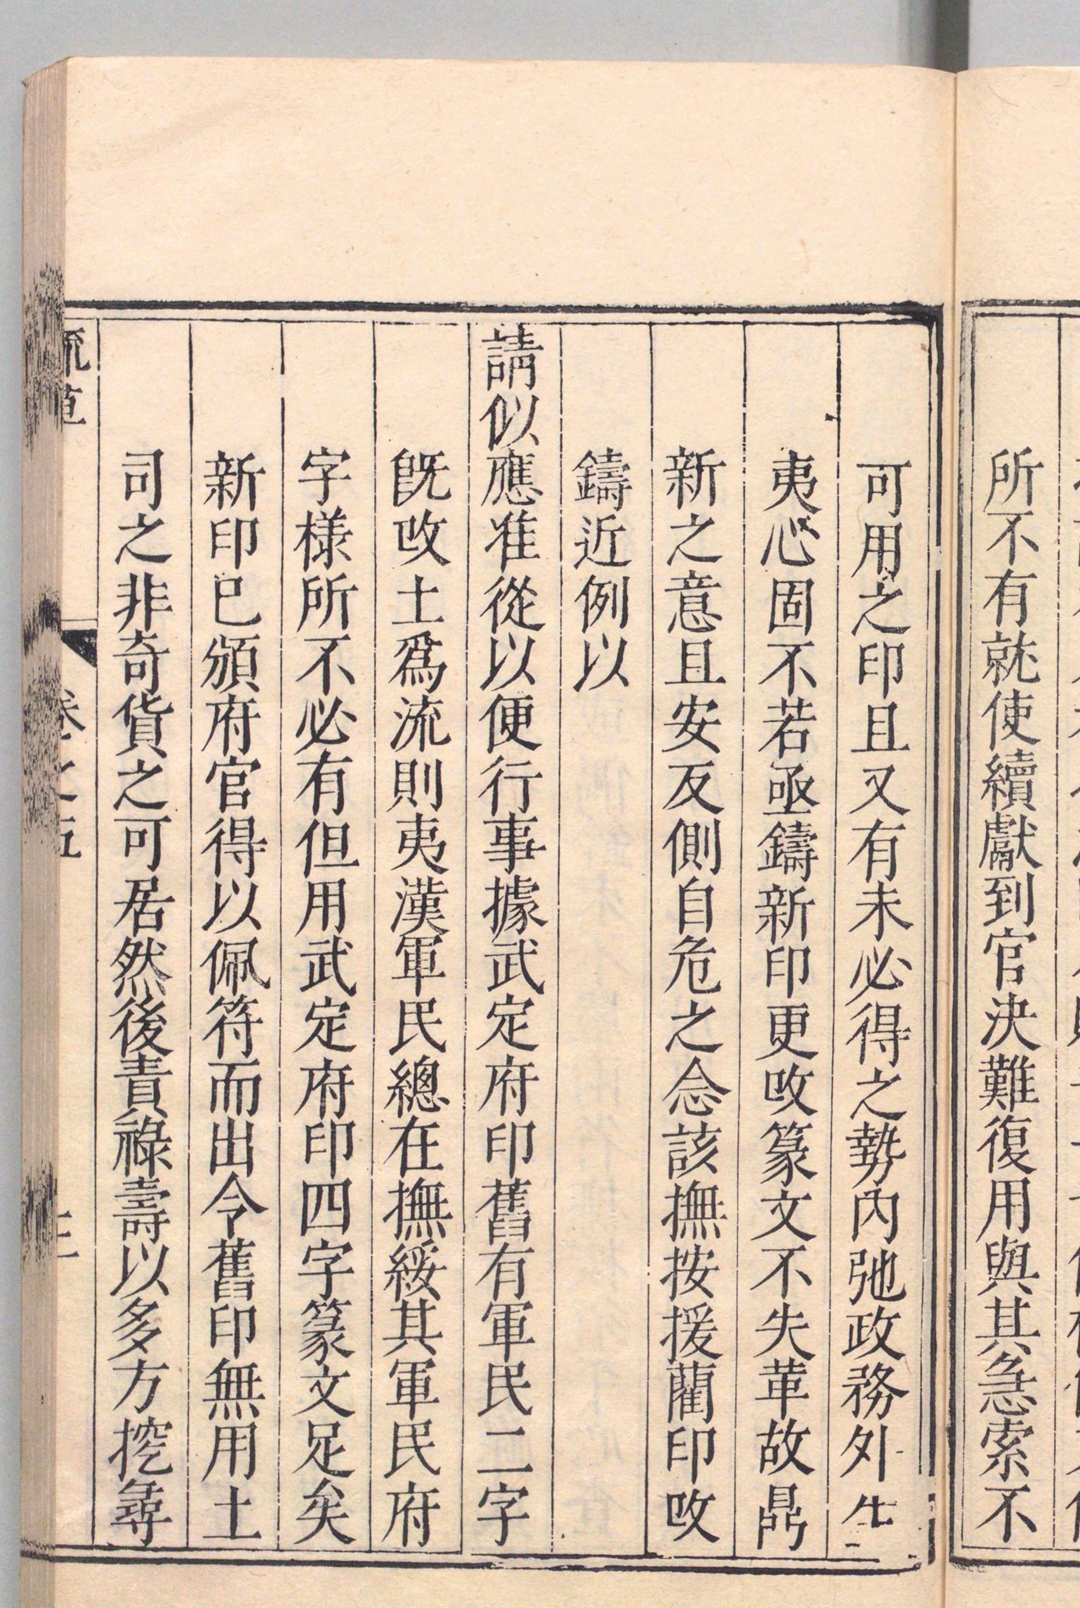 所不有就使續獻到官決難復用與其急索不
可用之印且又有未必得之勢內弛政務外生
夷心固不若亟鑄新印更改篆文不失革故鼎
新之意且安反側自危之念該撫按援藺印改
鑄近例以
請似應准從以便行事據武定府印舊有軍民二字
旣改土爲流則夷漢軍民總在撫綏其軍民府
字樣所不必有但用武定府印四字篆文足矣
新印巳頒府官得以佩符而出令舊印無用土
司之非奇貨之可居然後責祿壽以多方挖尋
疏草
卷之五